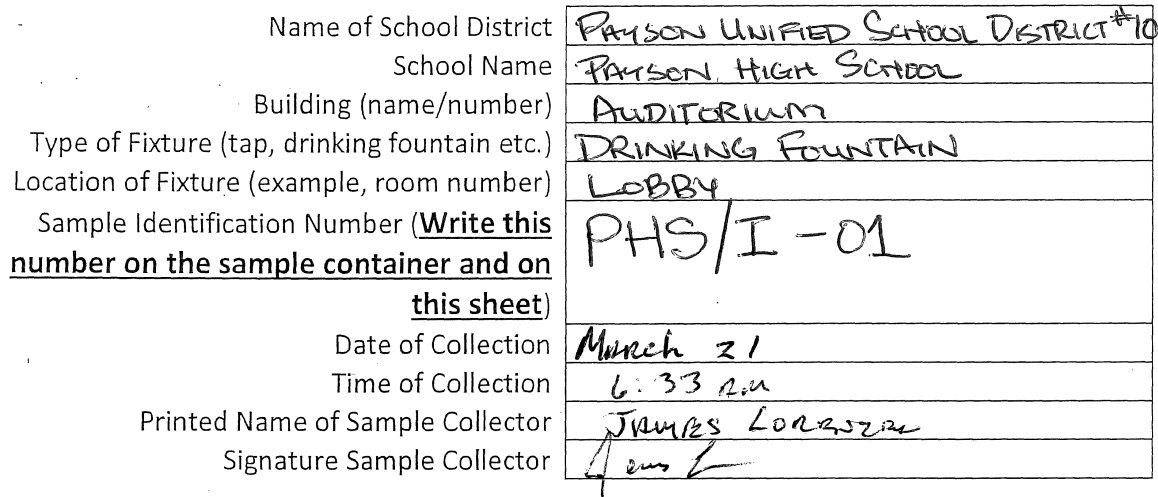 Name of School District PAYSON UNIFIED SCHOOL DISTRICT #10
School Name PAYSON HIGH SCHOOL
Building (name/number) AUDITORIUM
Type of Fixture (tap, drinking fountain etc.) DRINKING FOUNTAIN
Location of Fixture (example, room number) LOBBY
Sample Identification Number (Write this PHS/I-01
number on the sample container and on
this sheet)
Date of Collection March 21
Time of Collection 6:33 a.m
Printed Name of Sample Collector JAMES
Signature Sample Collector